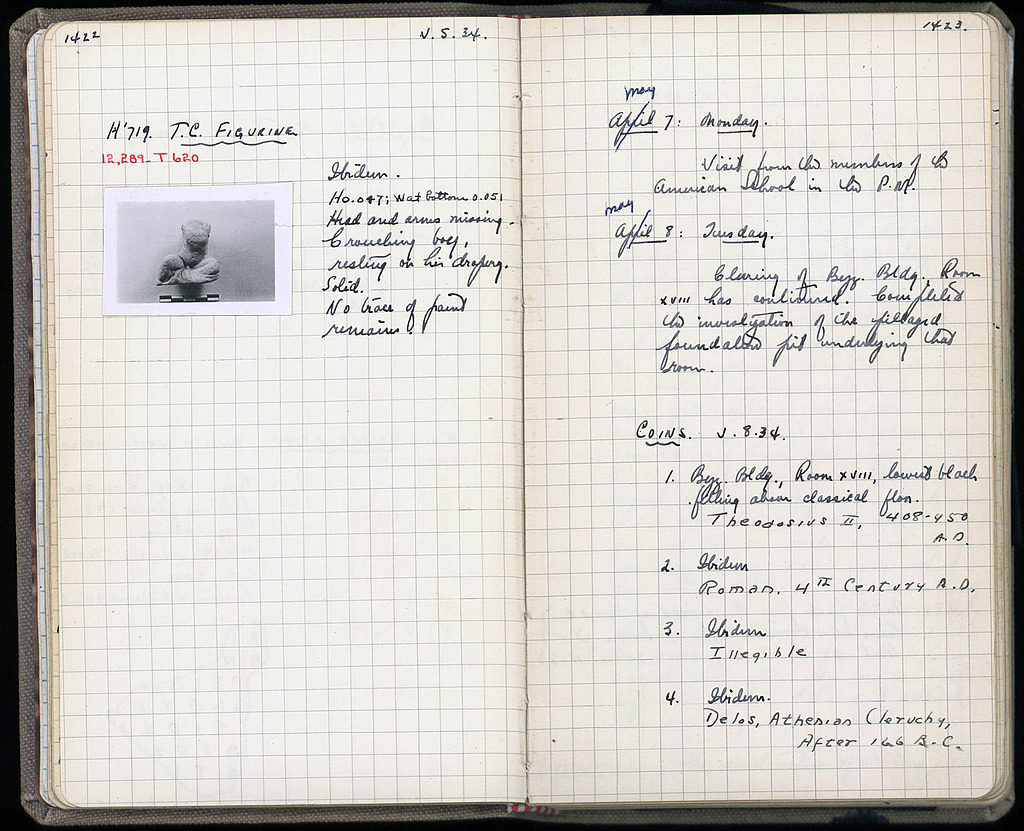 1422
V. S. 34.
H'719. T.C. FIGURINE
12,289 - T 620
Ibidem.
H 0.047; W at bottom 0.051
Head and arms missing.
Crouching boy,
resting on his drapery.
Solid.
No trace of paint
remains.
1423.
May
April 7: Monday.
Visit from the members of the
American School in the P.M.
May
April 8: Tuesday.
Clearing of Byz. Bldg. Room
XVIII has continued. Completed
the investigation of the pillaged
foundation pit underlying that
room.
COINS. V. 8. 34.
1. Byz. Bldg., Room XVIII, lowest black
filling above classical floor.
Theodosius II, 408-450
A.D.
2. Ibidem
Roman. 4TH Century A.D.
3. Ibidem
Illegible
4. Ibidem.
Delos, Athenian Cleruchy,
After 166 B.C.